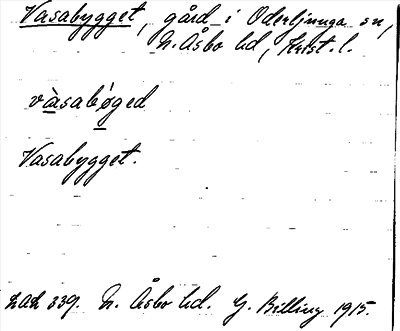 Vasabygget, gård i Oderljunga sn,
N. Åsbo hd, Krist. l.
vàsabǿged
Vasabygget.
Lad 339. N. Åsbo hd. G. Billing 1915.